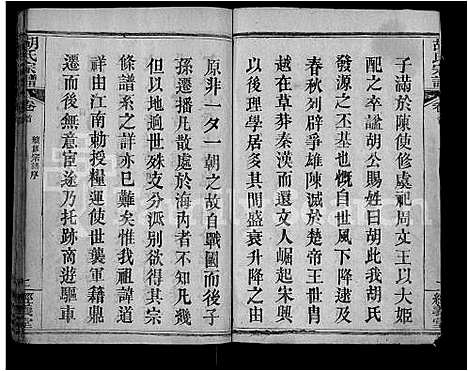 子滿於陳使修虞祀周文王以大姬
配之卒謚胡公賜姓曰胡此我胡氏
發源之丕基也慨自世風下降逮及
春秋列辟爭雄陳滅於楚帝王世胄
越在草莽秦漢以來幾至式微宋興
復以理學居多其間盛衰升降之由
原非一夕一朝之故自戰國而後子
孫遷播凡散處於海內者不知凡幾
迄於今逾世殊支分派別欲其宗
條譜系之詳已難矣惟我
祥由江南勅授糧運使世襲軍籍鼎
遷而後無意宦途乃托跡南遊驅車
胡氏宗譜
卷首
續修宗譜序